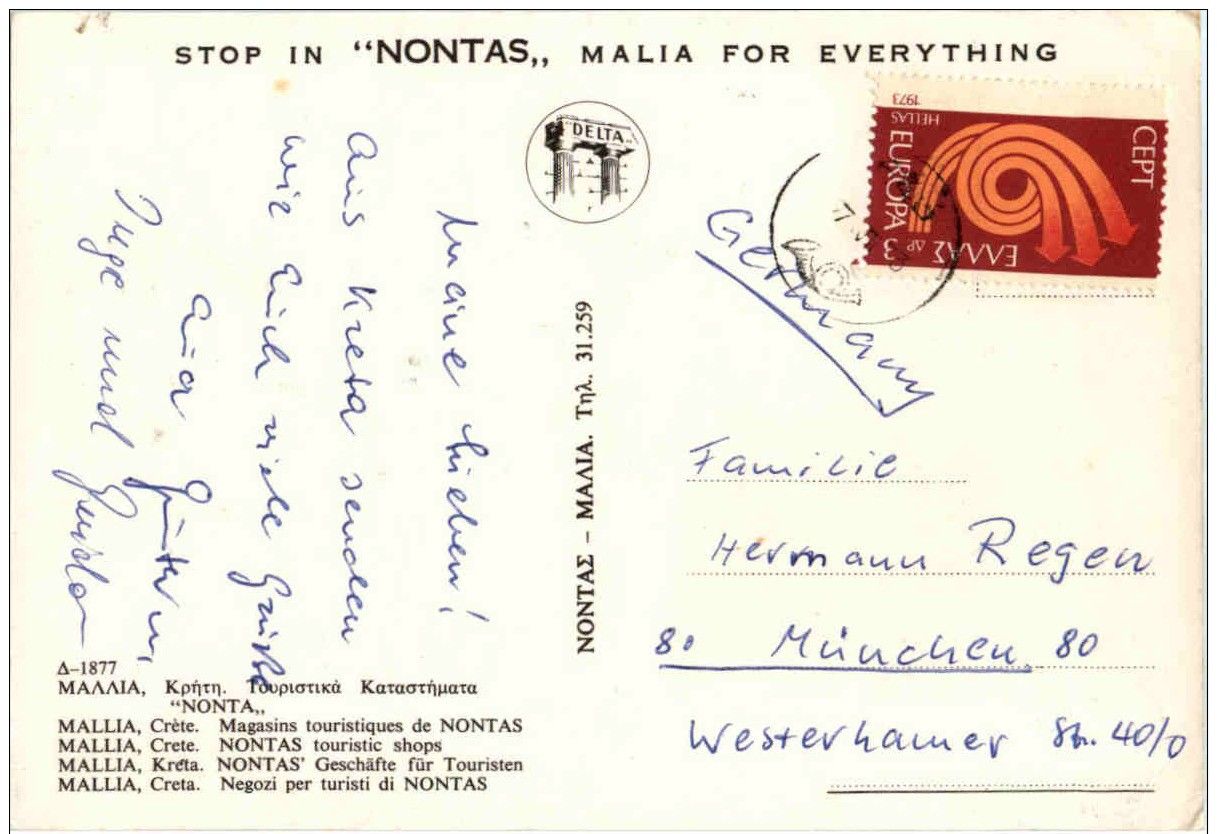 STOP IN “NONTAS„ MALIA FOR EVERYTHING
"DELTA„
1973
HELLAS
EUROPA
CEPT
ΕΛΛΑΣ ΔΡ 3
Meine Lieben!
Aus Kreta senden
wir Euch viele Grüße
Inge und
ΝΟΝΤΑΣ – ΜΑΛΙΑ. Τηλ. 31.259
Germany
Familie
Hermann Regen
80 München 80
Westerhamer Str. 40/0
Δ–1877
ΜΑΛΛΙΑ, Κρήτη. Τουριστικὰ Καταστήματα
“ΝΟΝΤΑ„
MALLIA, Crète. Magasins touristiques de NONTAS
MALLIA, Crete. NONTAS touristic shops
MALLIA, Kreta. NONTAS’ Geschäfte für Touristen
MALLIA, Creta. Negozi per turisti di NONTAS